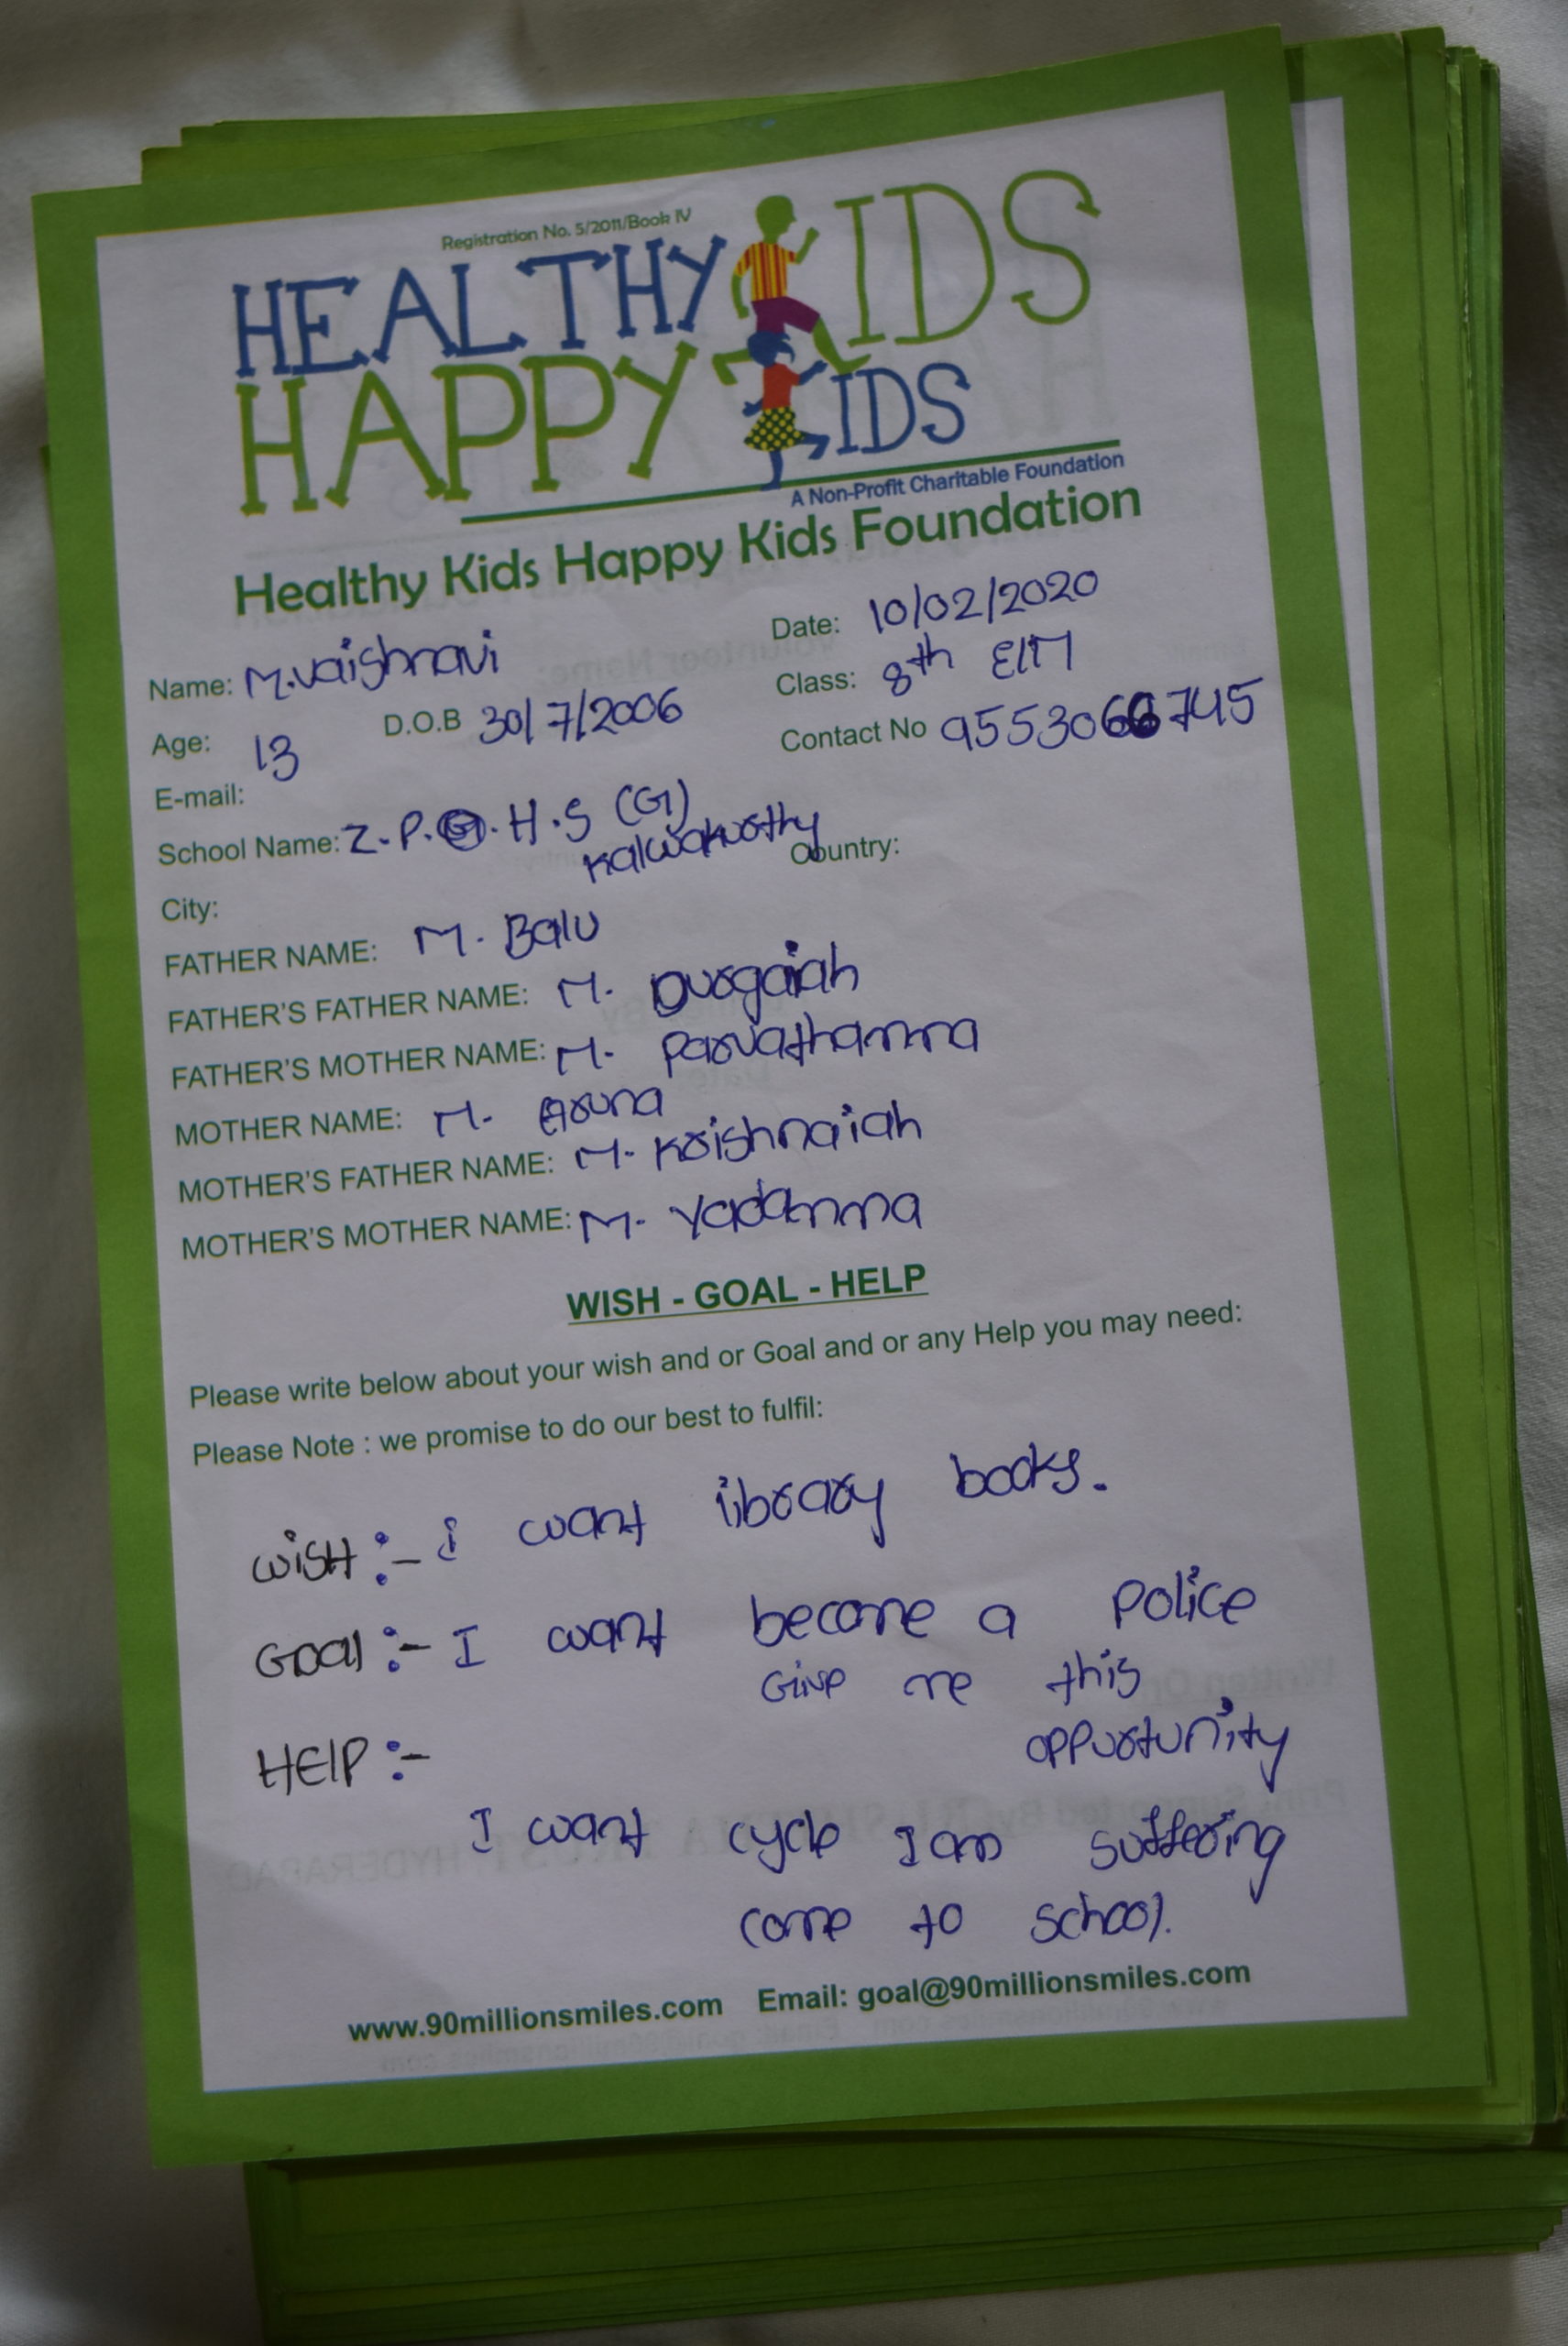 Registration No. 5/2011/Book IV
HEALTHY KIDS
HAPPY KIDS
A Non-Profit Charitable Foundation
Healthy Kids Happy Kids Foundation
Name: M.vaishnavi Date: 10/02/2020
Age: 13 D.O.B 30/7/2006 Class: 8th E/M
E-mail: Contact No 9553066745
School Name: Z.P.G.H.S (G)
kalwakurthy
City: Country:
FATHER NAME: M. Balu
FATHER'S FATHER NAME: M. Durgaiah
FATHER'S MOTHER NAME: M. Parvathamma
MOTHER NAME: M. Aruna
MOTHER'S FATHER NAME: M. Krishnaiah
MOTHER'S MOTHER NAME: M. Yadamma
WISH - GOAL - HELP
Please write below about your wish and or Goal and or any Help you may need:
Please Note : we promise to do our best to fulfil:
WISH :- i want library books.
GOal :- I want become a police
Give me this
oppurtunity
HElP :-
I want cycle I am suffering
come to school.
www.90millionsmiles.com Email: goal@90millionsmiles.com